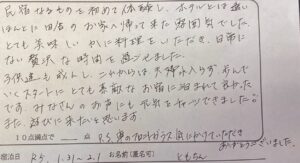 民宿なるものを初めて体験し、ホテルとは違い
ほんとに田舎のお家に帰って来た雰囲気でした。
とても美味しいカニ料理をいただき、日常に
ない贅沢な時間を過ごせました。
子供達も成人し、これからは夫婦水入らず歩んで
いくスタートにとても素敵なお宿に泊まれて良かった
です。みなさんのお声にも元気をチャージできました。
また、遊びに来たいと思います。
10点満点で 点 R5
ありがとうございました。
宿泊日 R5. 1.31〜2.1 お名前(匿名可) ともちん